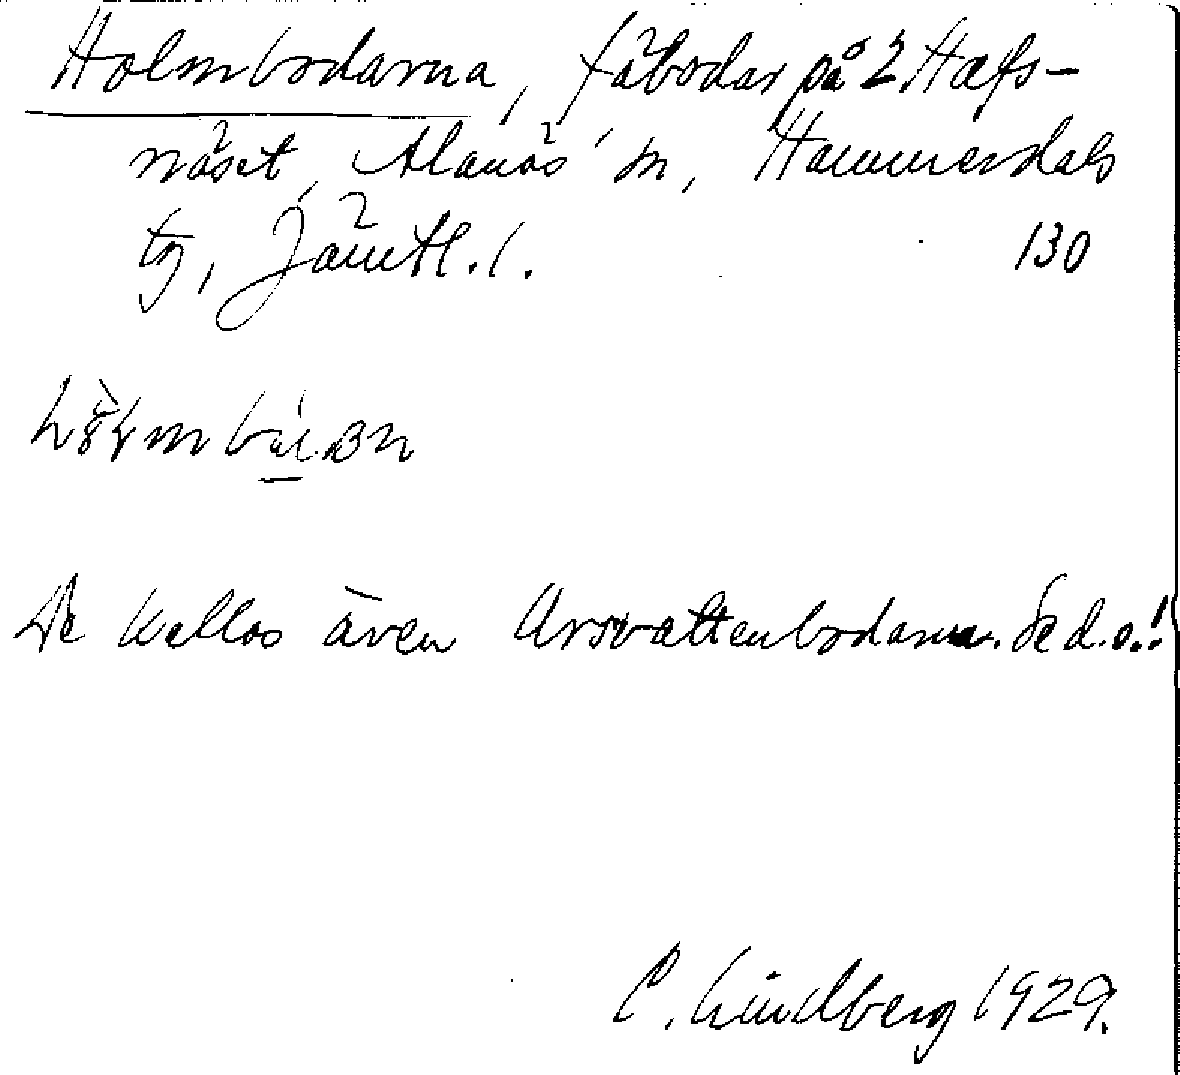 Holmbodarna, fäbodar på 2 Hafs-
näset, Alanäs sn, Hammerdals
tg, Jämtl. l. 130
De kallas även Arsvattenbodarna. Se d. o.!
C. Lindberg 1929.